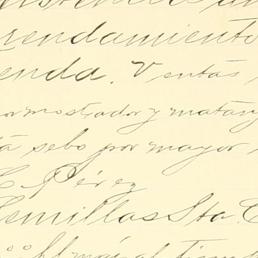 rendamiento
enda. Ventas
or mostrador y matan
tá sebo por mayor
C. Pérez
Semillas Sta. C